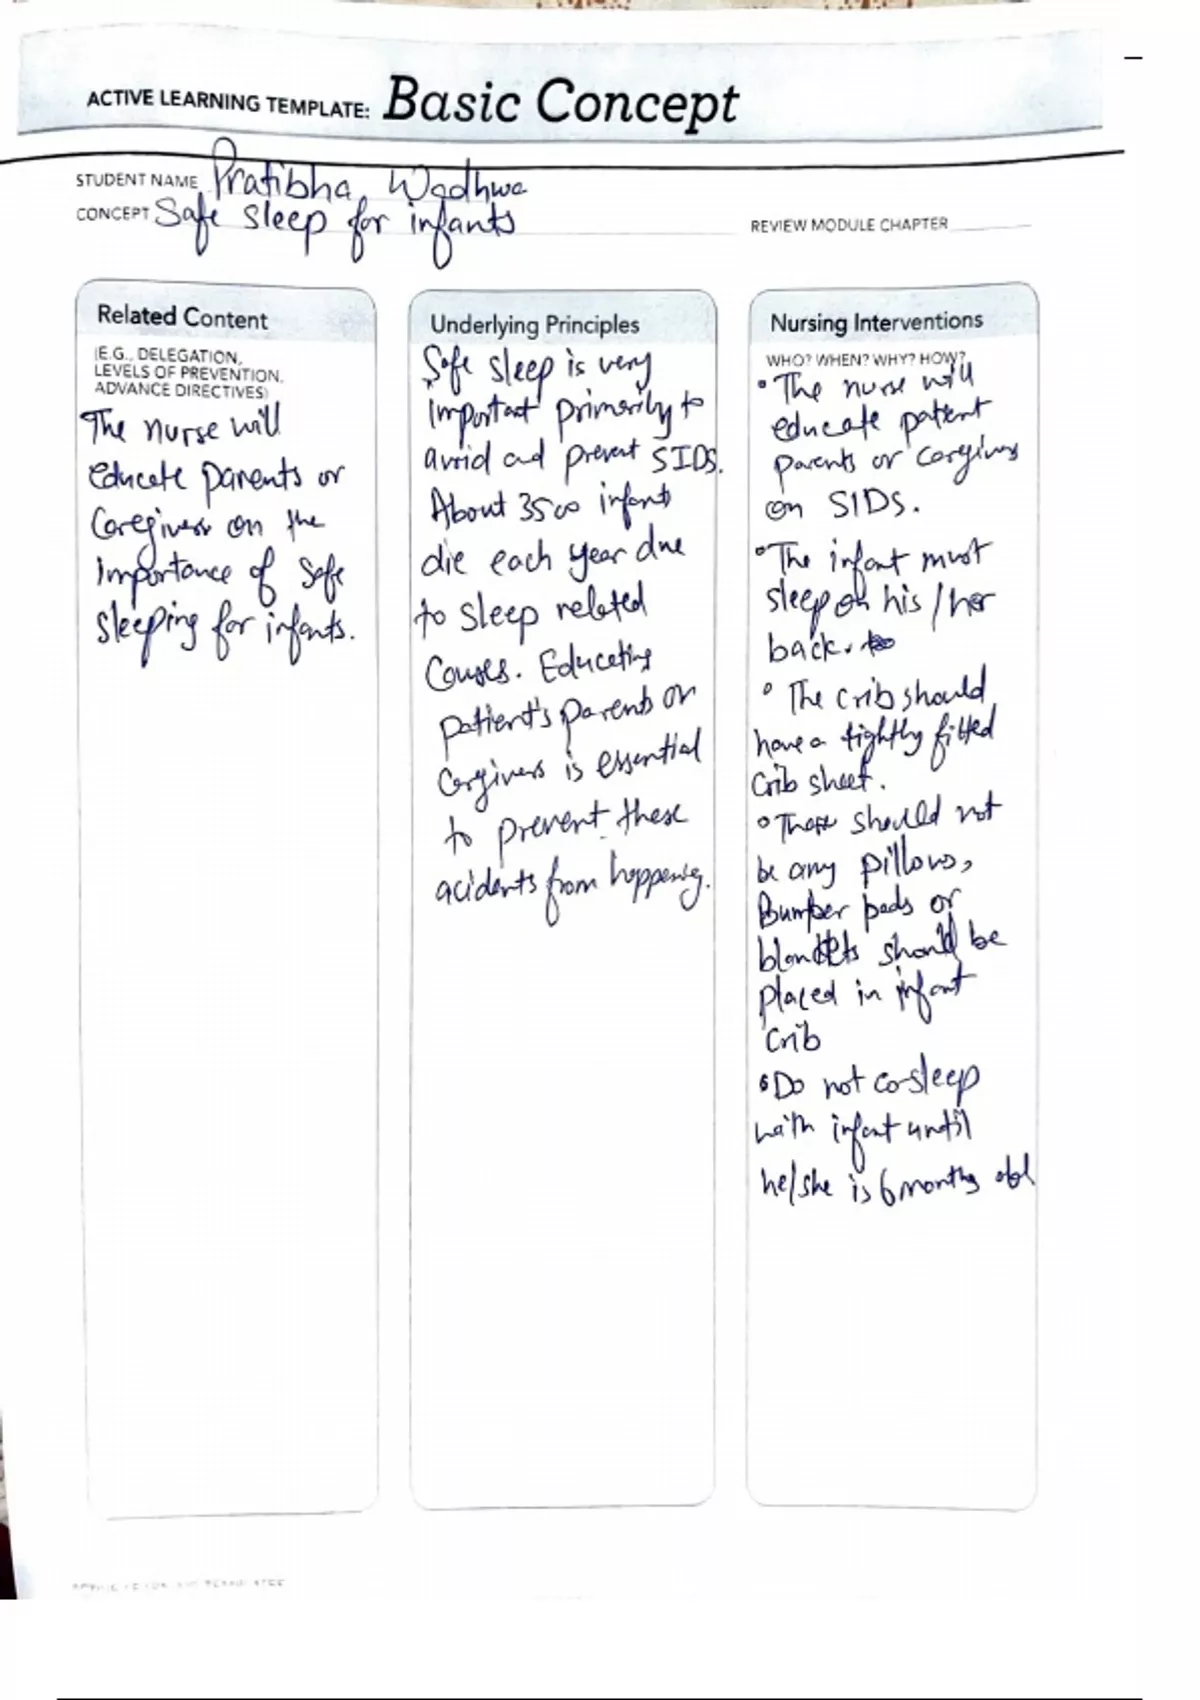 ACTIVE LEARNING TEMPLATE: Basic Concept
STUDENT NAME Pratibha Wadhwa
CONCEPT Safe sleep for infants
REVIEW MODULE CHAPTER
Related Content
(E.G., DELEGATION,
LEVELS OF PREVENTION,
ADVANCE DIRECTIVES)
The nurse will
educate parents or
Caregivers on the
importance of safe
sleeping for infants.
Underlying Principles
Safe sleep is very
important primarily to
avoid and prevent SIDS.
About 3500 infants
die each year due
to sleep related
Causes. Educating
patient's parents or
Cargivers is essential
to prevent these
acidents from happening.
Nursing Interventions
WHO? WHEN? WHY? HOW?
• The nurse will
educate patient
parents or Cargivers
on SIDS.
• The infant must
sleep on his / her
back.
• The crib should
have a tightly fitted
Crib sheet.
• There should not
be any pillows,
Bumper pads or
blankets should be
placed in infant
Crib
• Do not co-sleep
with infant until
he/she is 6 months old